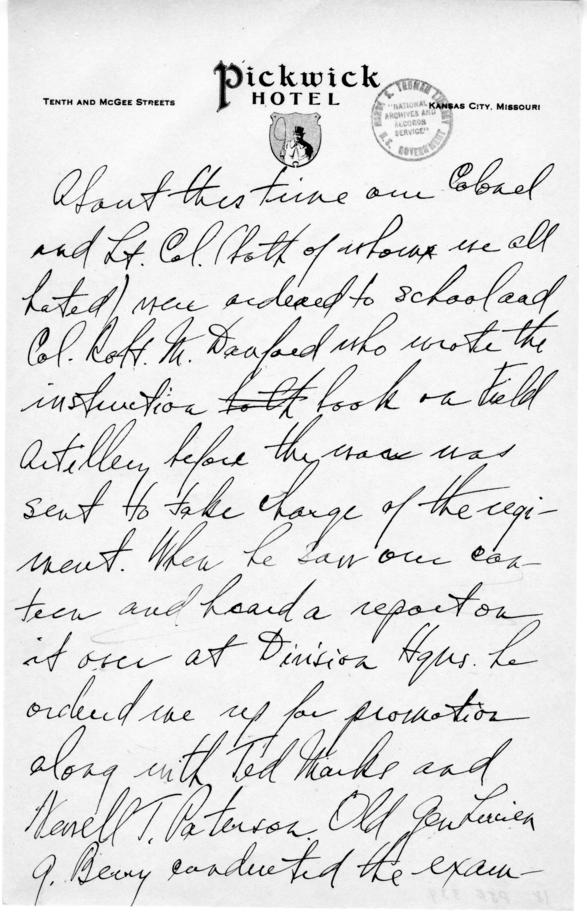 Pickwick
HOTEL
TENTH AND McGEE STREETS
KANSAS CITY, MISSOURI
HARRY S. TRUMAN LIBRARY
"NATIONAL
ARCHIVES AND
RECORDS
SERVICE"
U.S. GOVERNMENT
About this time our Colonel
and Lt. Col. (both of whom we all
hated) were ordered to school and
Col. Robt. M. Danford who wrote the
instruction both book on Field
Artillery before the war was
sent to take charge of the regi-
ment. When he saw our can-
teen and heard a report on
it over at Division Hqrs. he
ordered me up for promotion
along with Ted Marks and
Newell T. Paterson. Old Gen Lucien
G. Berry conducted the exam-